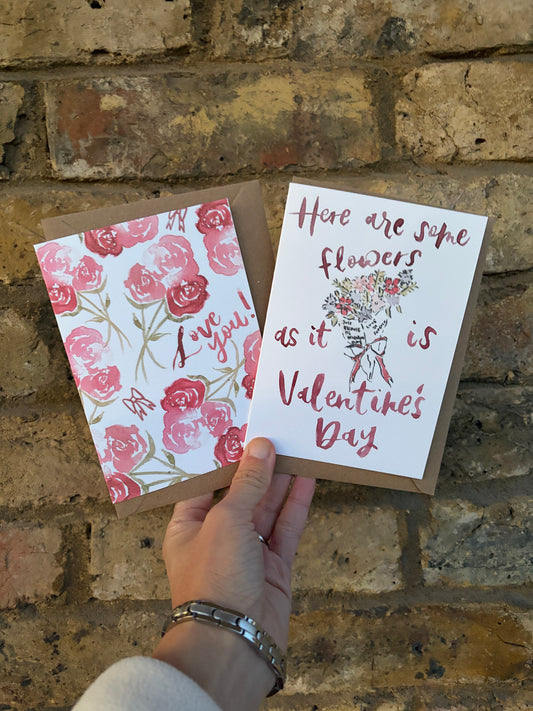 Love
you!
Here are some
flowers
as it is
Valentine's
Day